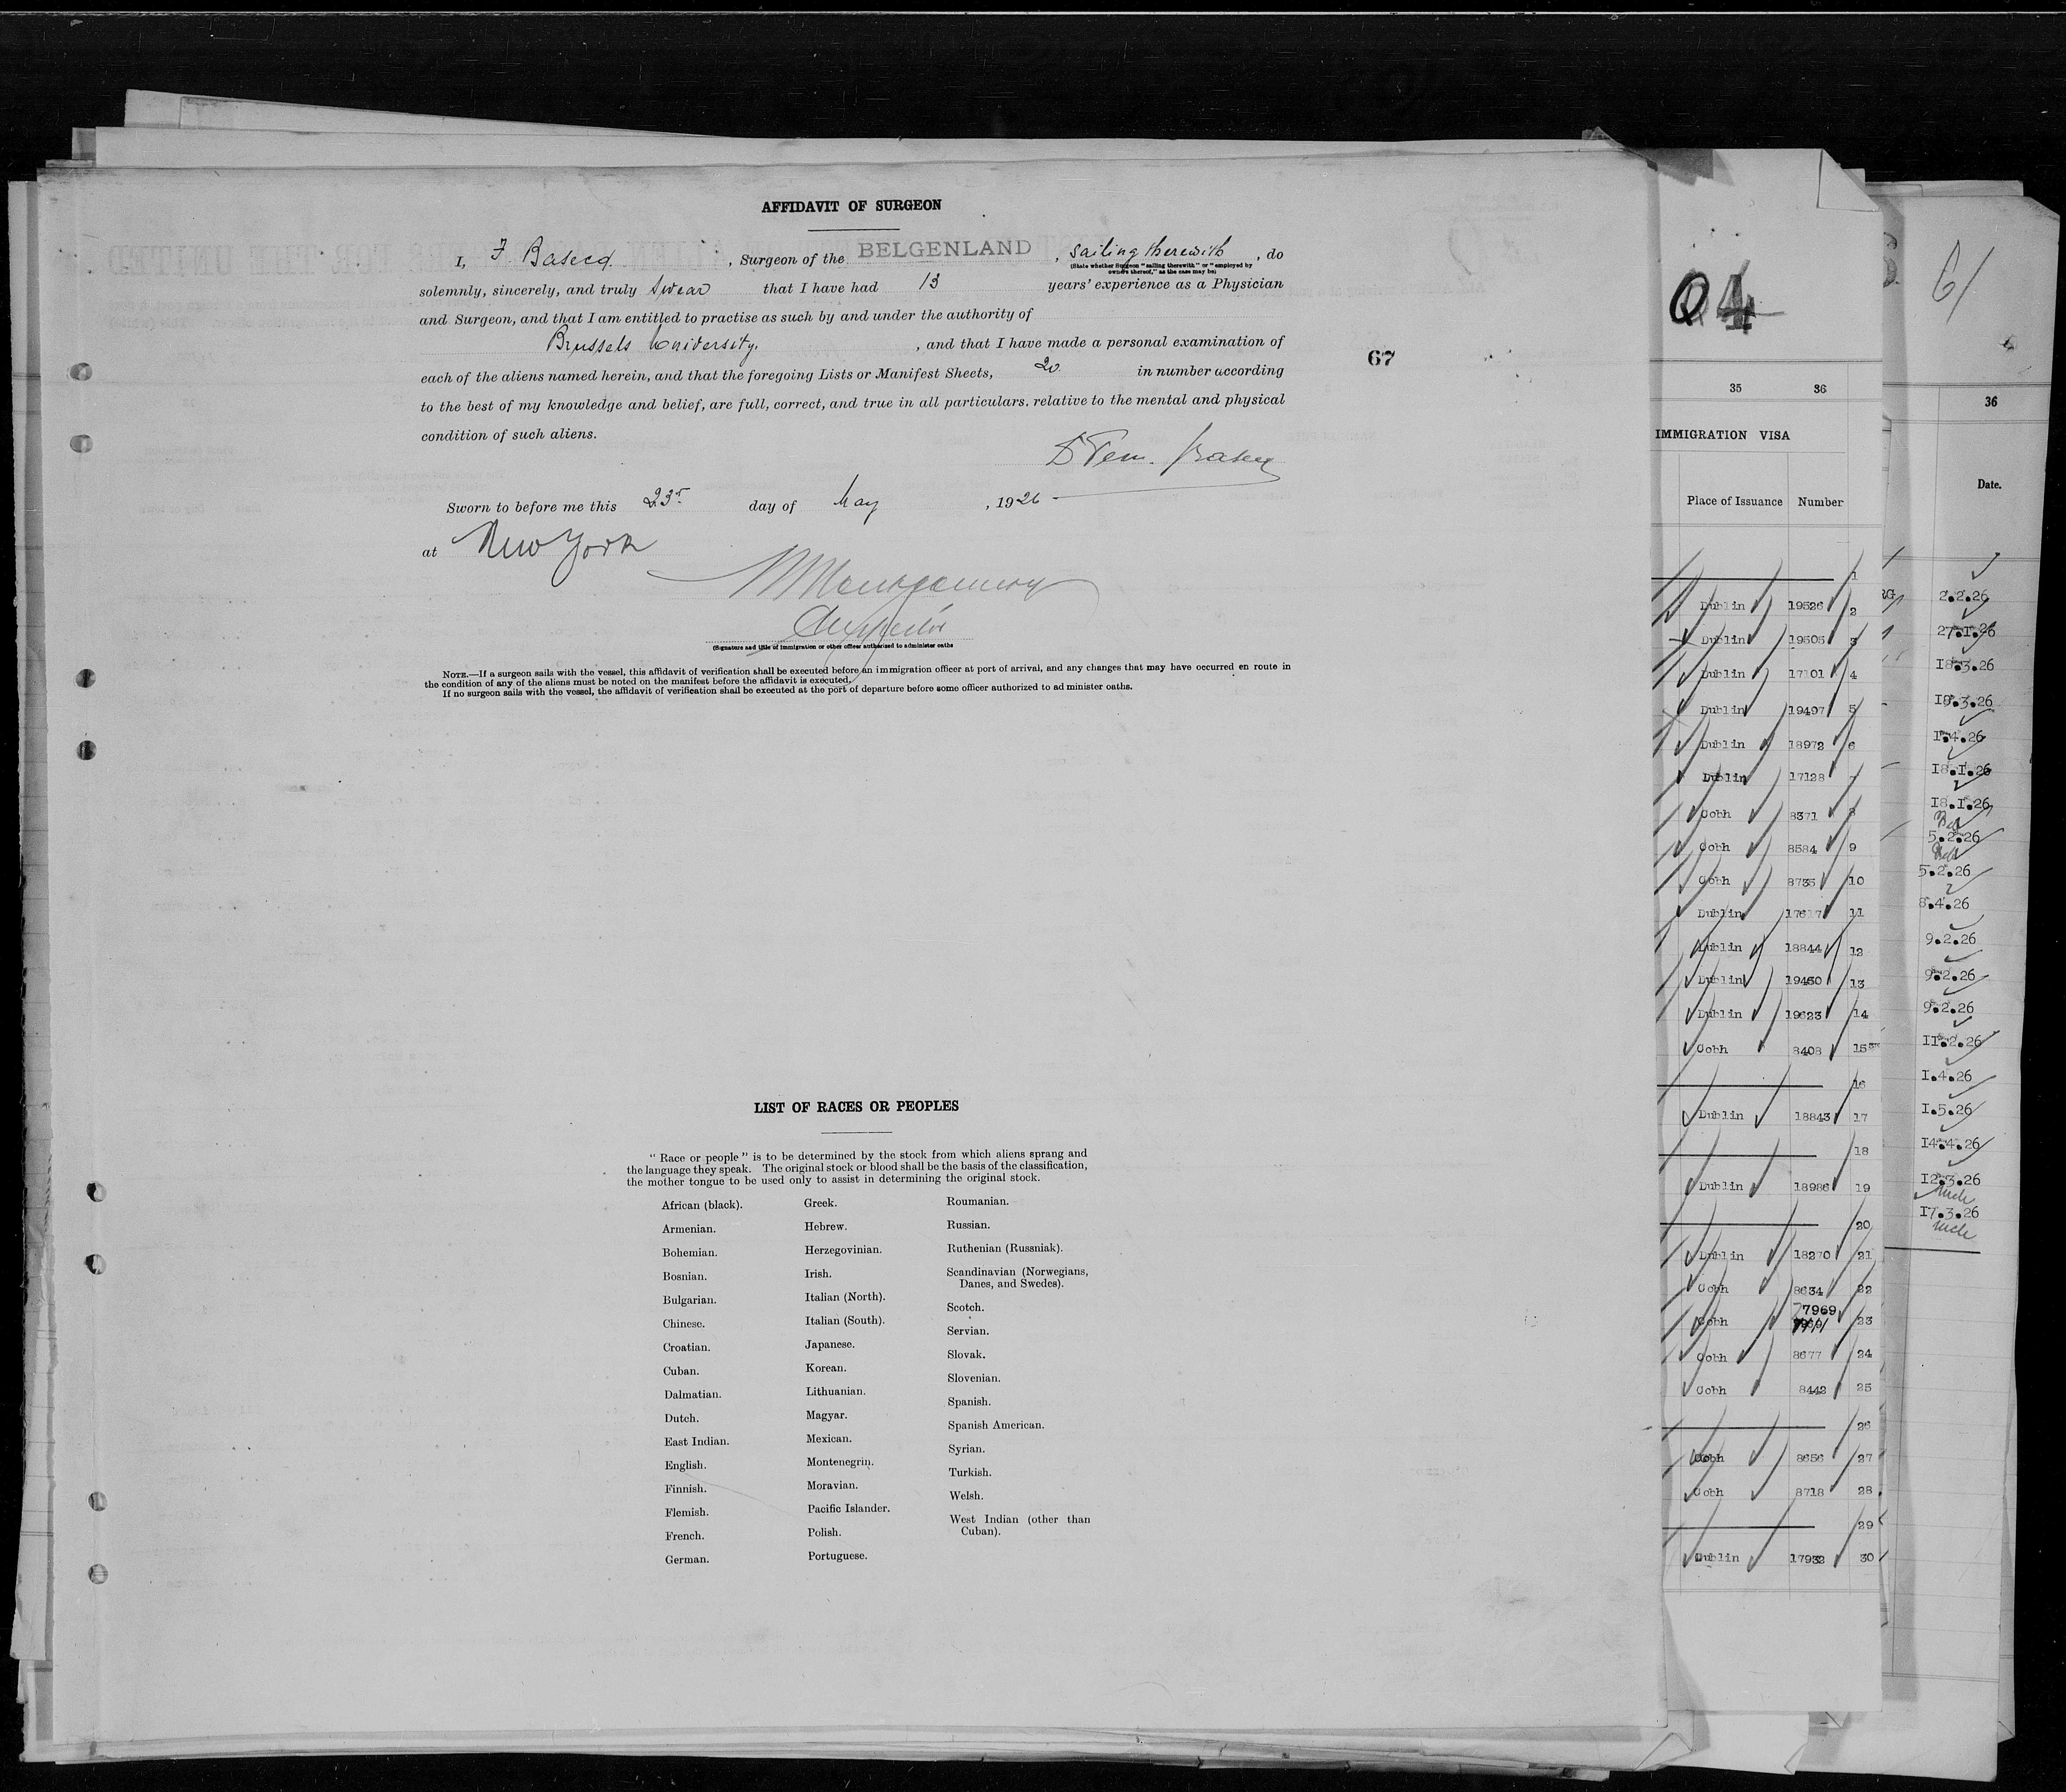 AFFIDAVIT OF SURGEON
I, F. Basecq, Surgeon of the BELGENLAND, sailing therewith, do
(State whether Surgeon "sailing therewith" or "employed by
owners thereof," as the case may be)
solemnly, sincerely, and truly swear that I have had 13 years' experience as a Physician
and Surgeon, and that I am entitled to practise as such by and under the authority of
Brussels University, and that I have made a personal examination of
each of the aliens named herein, and that the foregoing Lists or Manifest Sheets, 20 in number according
to the best of my knowledge and belief, are full, correct, and true in all particulars, relative to the mental and physical
condition of such aliens.
Sworn to before me this 23 day of May, 1926
at New York
Montgomery
(Signature and title of immigration or other officer authorized to administer oaths
NOTE.—If a surgeon sails with the vessel, this affidavit of verification shall be executed before an immigration officer at port of arrival, and any changes that may have occurred en route in
the condition of any of the aliens must be noted on the manifest before the affidavit is executed.
If no surgeon sails with the vessel, the affidavit of verification shall be executed at the port of departure before some officer authorized to administer oaths.
67
LIST OF RACES OR PEOPLES
" Race or people " is to be determined by the stock from which aliens sprang and
the language they speak. The original stock or blood shall be the basis of the classification,
the mother tongue to be used only to assist in determining the original stock.
African (black).
Armenian.
Bohemian.
Bosnian.
Bulgarian.
Chinese.
Croatian.
Cuban.
Dalmatian.
Dutch.
East Indian.
English.
Finnish.
Flemish.
French.
German.
Greek.
Hebrew.
Herzegovinian.
Irish.
Italian (North).
Italian (South).
Japanese.
Korean.
Lithuanian.
Magyar.
Mexican.
Montenegrin.
Moravian.
Pacific Islander.
Polish.
Portuguese.
Roumanian.
Russian.
Ruthenian (Russniak).
Scandinavian (Norwegians,
Danes, and Swedes).
Scotch.
Servian.
Slovak.
Slovenian.
Spanish.
Spanish American.
Syrian.
Turkish.
Welsh.
West Indian (other than
Cuban).
35 36
IMMIGRATION VISA
Place of Issuance Number
1
Dublin 19526 2
Dublin 19505 3
Dublin 17101 4
Dublin 19497 5
Dublin 18972 6
Dublin 17128 7
Cobh 8371 8
Cobh 8584 9
Cobh 8735 10
Dublin 17617 11
Dublin 18844 12
Dublin 19450 13
Dublin 19623 14
Cobh 8408 15
16
Dublin 18843 17
18
Dublin 18986 19
20
Dublin 18270 21
Cobh 8634 22
Cobh 7969 23
Cobh 8677 24
Cobh 8442 25
26
Cobh 8656 27
Cobh 8718 28
29
Dublin 17932 30
61
36
Date.
2.2.26
27.1.26
18.3.26
19.3.26
1.4.26
18.1.26
18.1.26
5.2.26
5.2.26
8.4.26
9.2.26
9.2.26
9.2.26
11.2.26
1.4.26
1.5.26
14.4.26
12.3.26
17.3.26